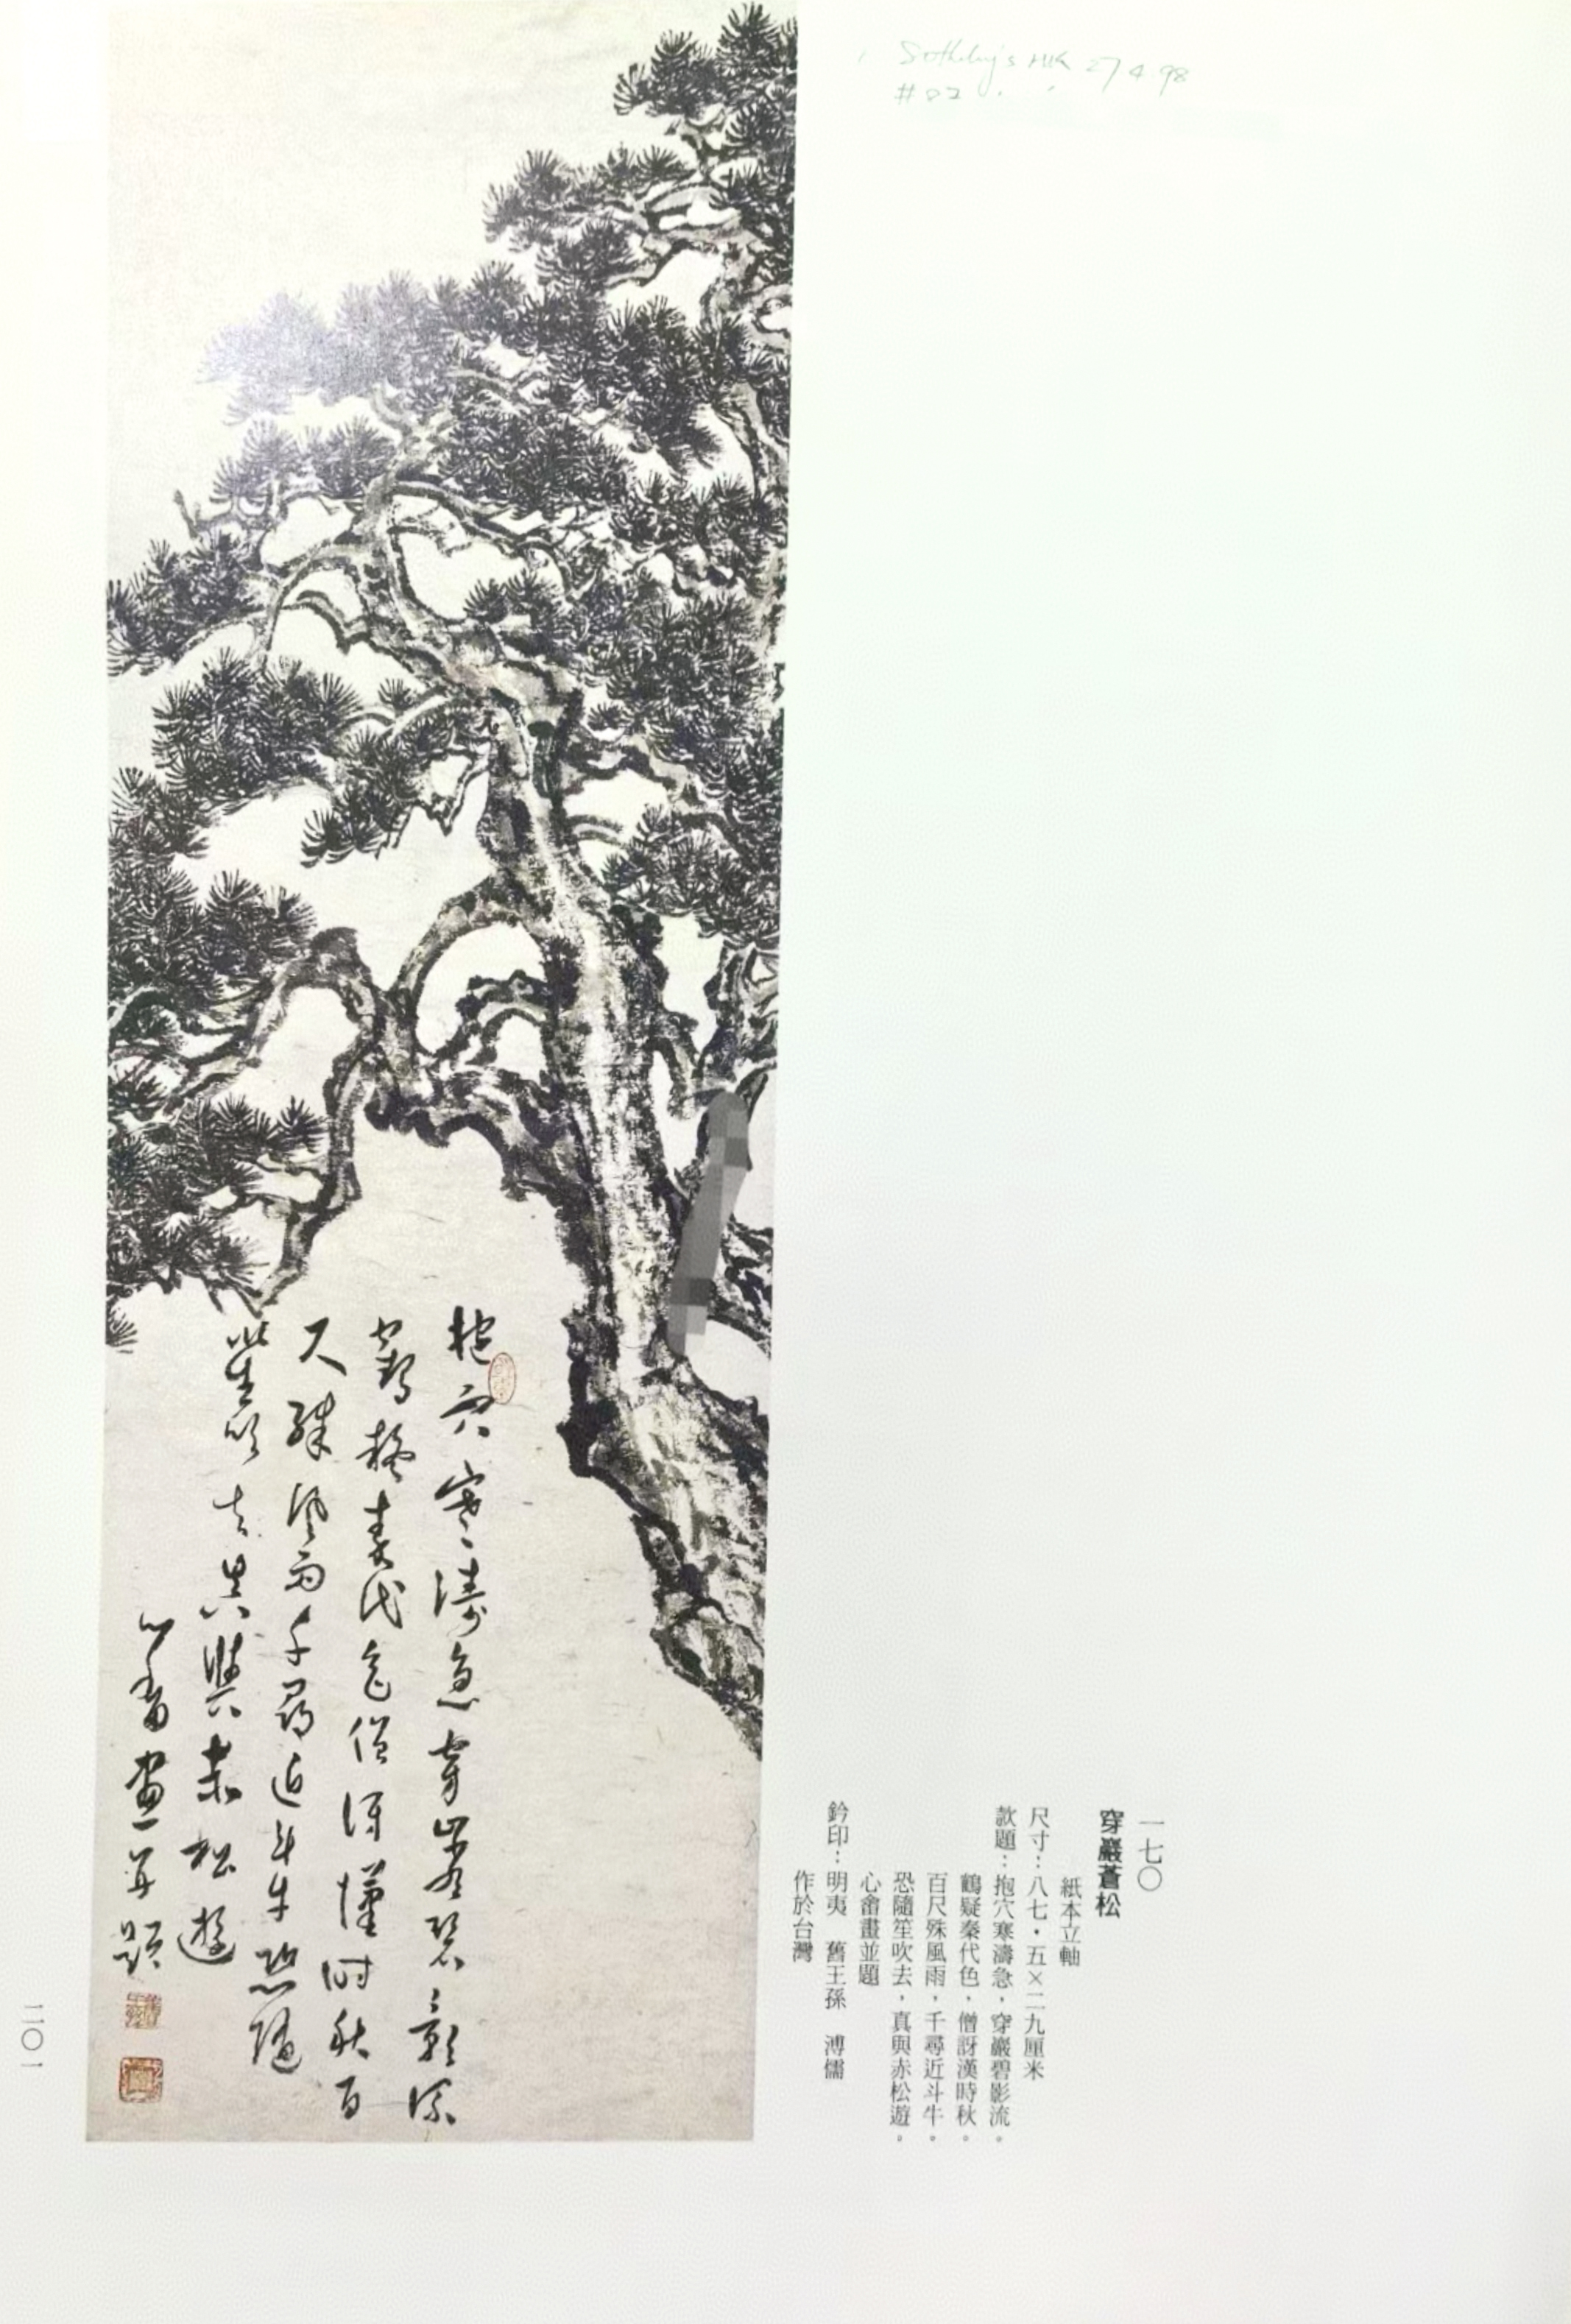 Sotheby's HK 27 4 98
#82
一七〇
穿巖蒼松
紙本立軸
尺寸：八七·五×二九厘米
款題：抱穴寒濤急，穿巖碧影流。
鶴疑秦代色，僧訝漢時秋。
百尺殊風雨，千尋近斗牛。
恐隨笙吹去，真與赤松遊。
心畬畫並題
鈐印：明夷　舊王孫　溥儒
作於台灣
抱穴寒濤急穿巖碧影流
鶴疑秦代色僧訝漢時秋百
尺殊風雨千尋近斗牛恐隨
笙吹去真與赤松遊
心畬畫並題
二〇一